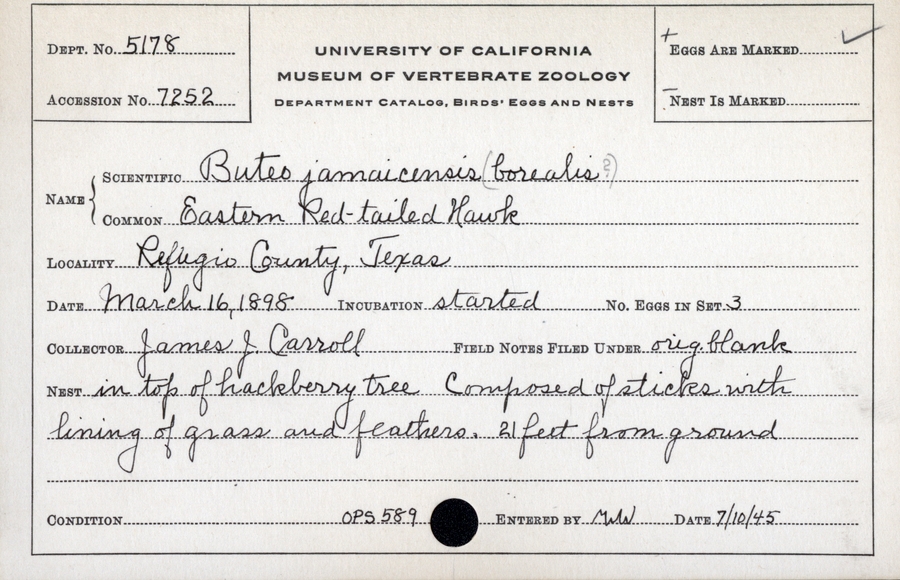 DEPT. No. 5178
ACCESSION No. 7252
UNIVERSITY OF CALIFORNIA
MUSEUM OF VERTEBRATE ZOOLOGY
DEPARTMENT CATALOG, BIRDS' EGGS AND NESTS
+ EGGS ARE MARKED ✓
– NEST IS MARKED
NAME { SCIENTIFIC Buteo jamaicensis (borealis?)
COMMON Eastern Red-tailed Hawk
LOCALITY Refugio County, Texas
DATE March 16, 1898 INCUBATION started No. EGGS IN SET 3
COLLECTOR James J. Carroll FIELD NOTES FILED UNDER orig. blank
NEST in top of hackberry tree Composed of sticks with
lining of grass and feathers. 21 feet from ground
CONDITION OPS 589 ENTERED BY DATE 7/10/45